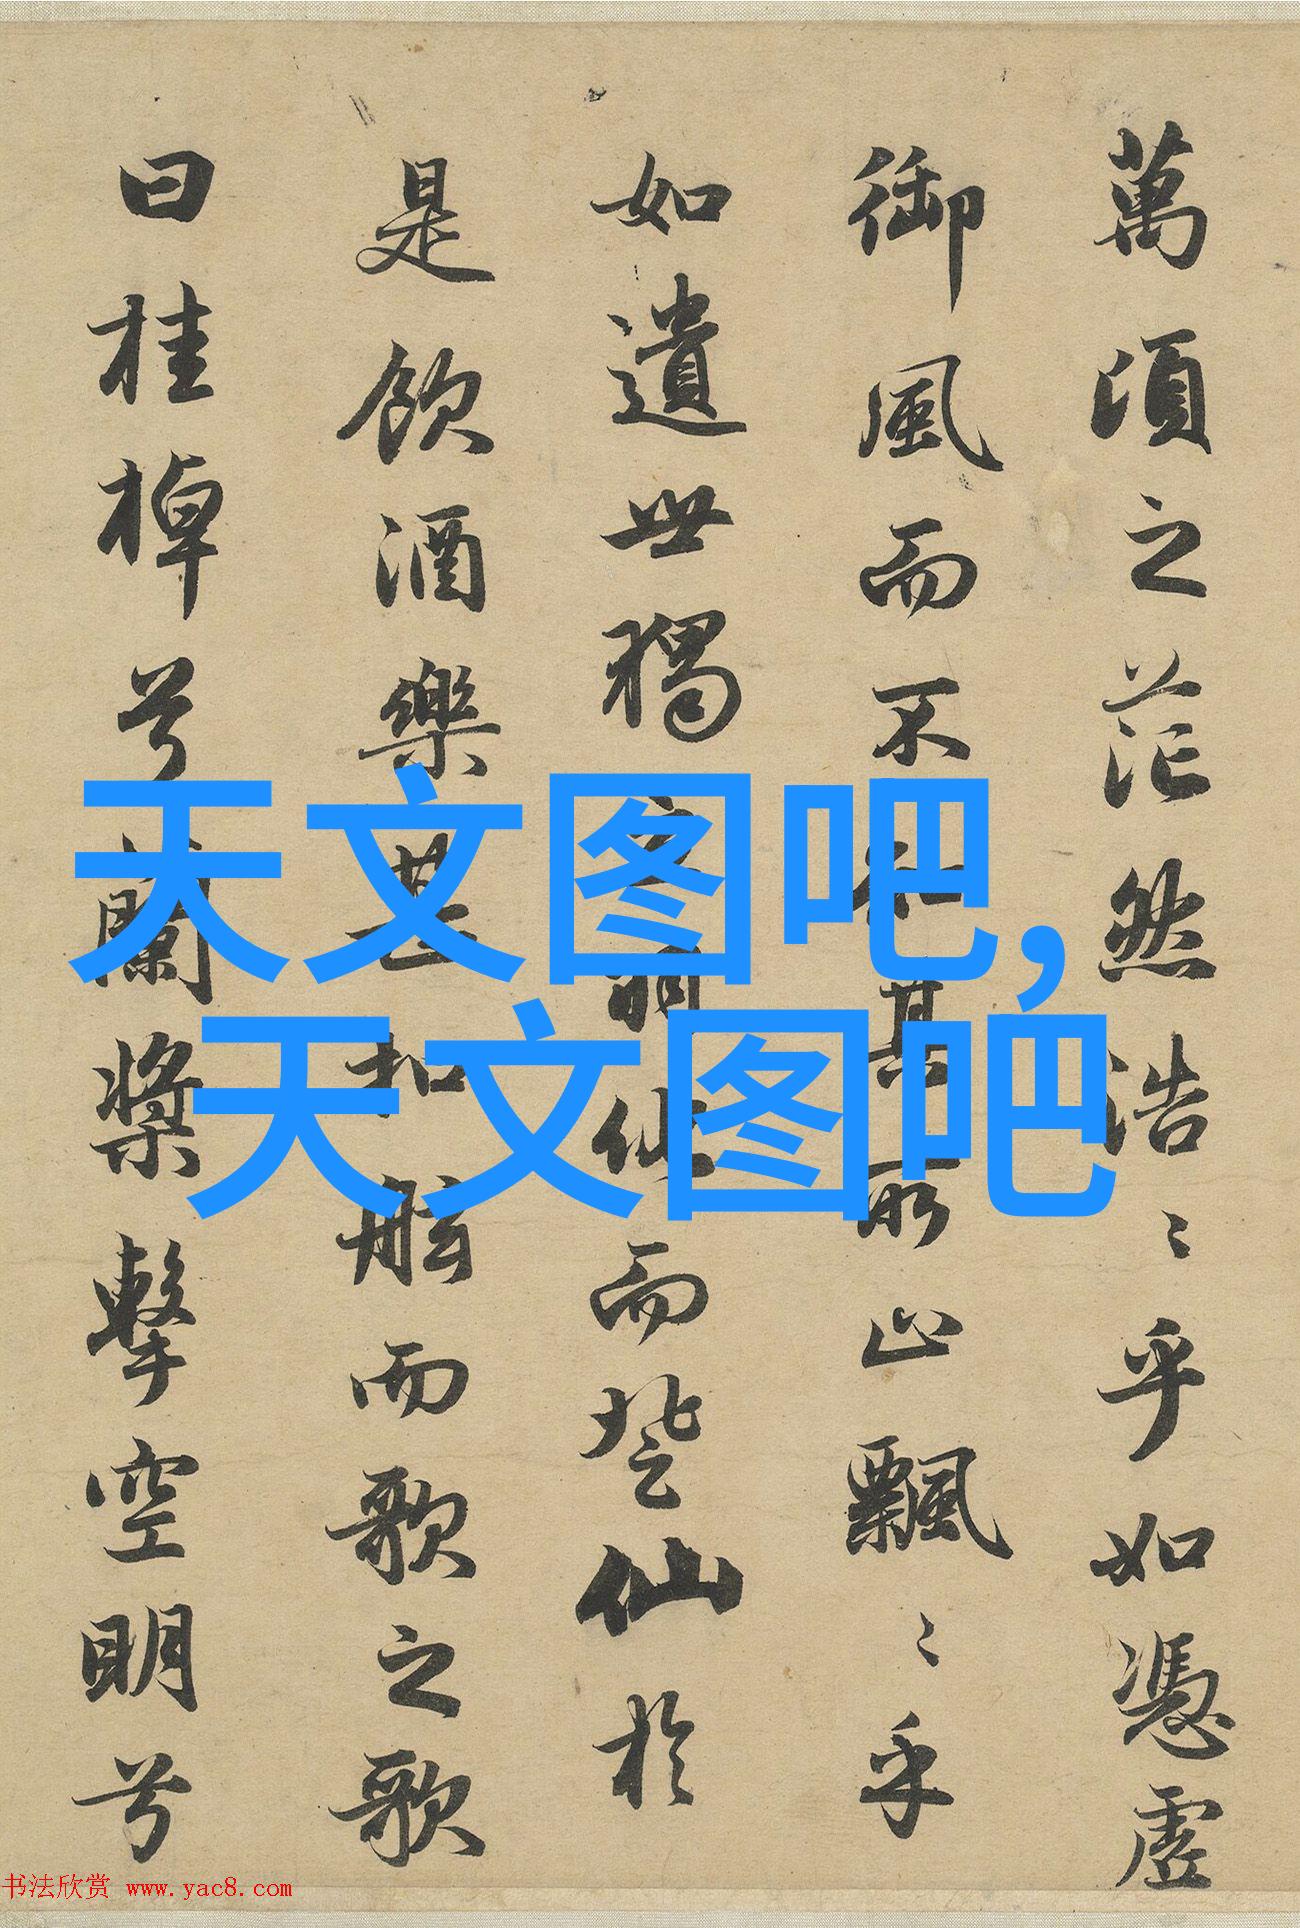 萬頃之茫然浩〻乎如憑虛
御風而不知其所止飄〻乎
如遺世獨立羽化而登仙於
是飲酒樂甚扣舷而歌之歌
曰桂棹兮蘭槳擊空明兮
天文图吧,
天文图吧
书法欣赏 www.yac8.com